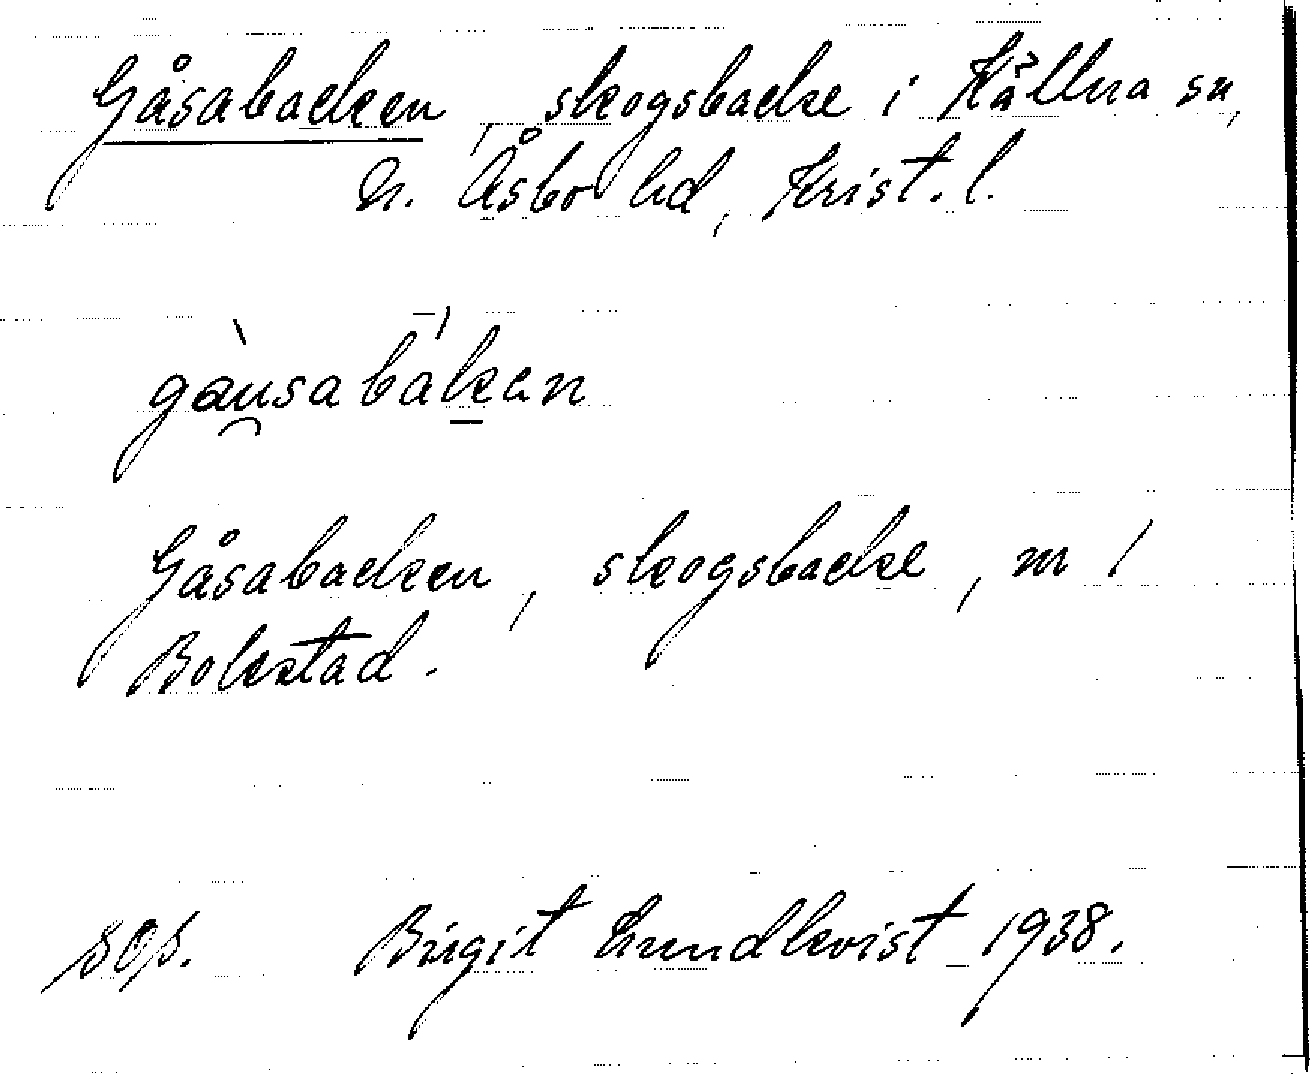 Gåsabacken, skogsbacke i Källna sn,
N. Åsbo hd, Krist. l.
gàusabákan
Gåsabacken, skogsbacke, m /
Bolestad.
sop. Birgit Lundkvist 1938.